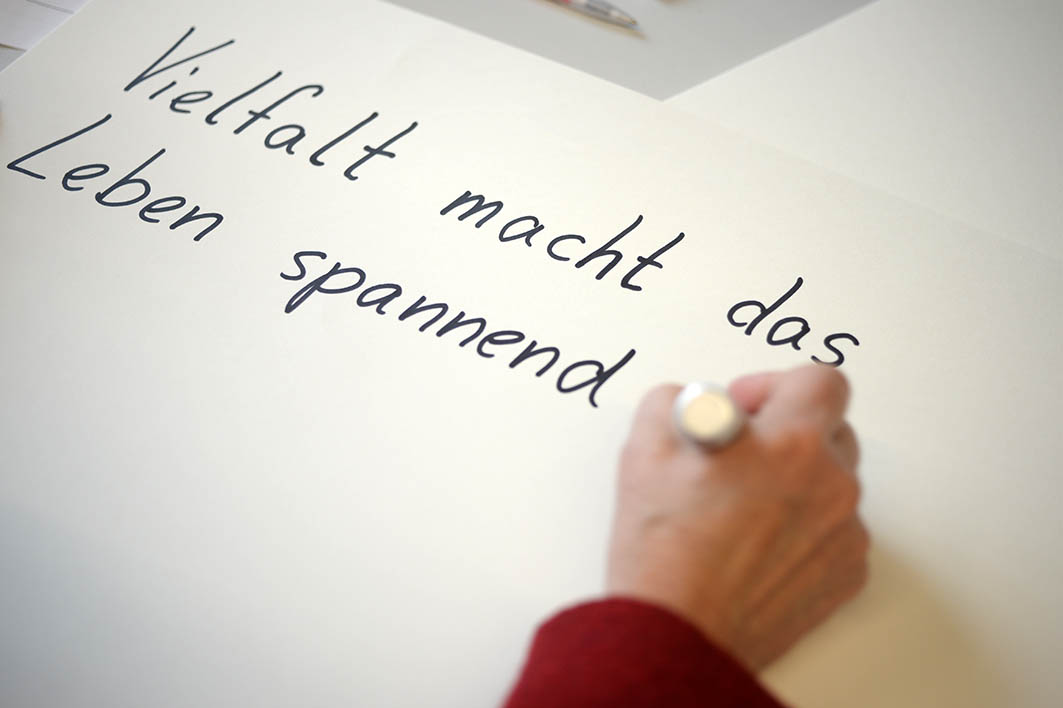 Vielfalt macht das
Leben spannend